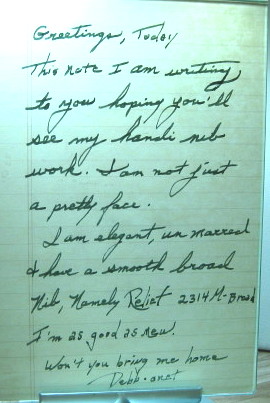 Greetings, Today
This note I am writing
to you hoping you'll
see my handi nib
work. I am not just
a pretty face.
I am elegant, un marred
& have a smooth broad
Nib, Namely Relief 2314 M-Broad
I'm as good as new.
Won't you bring me home